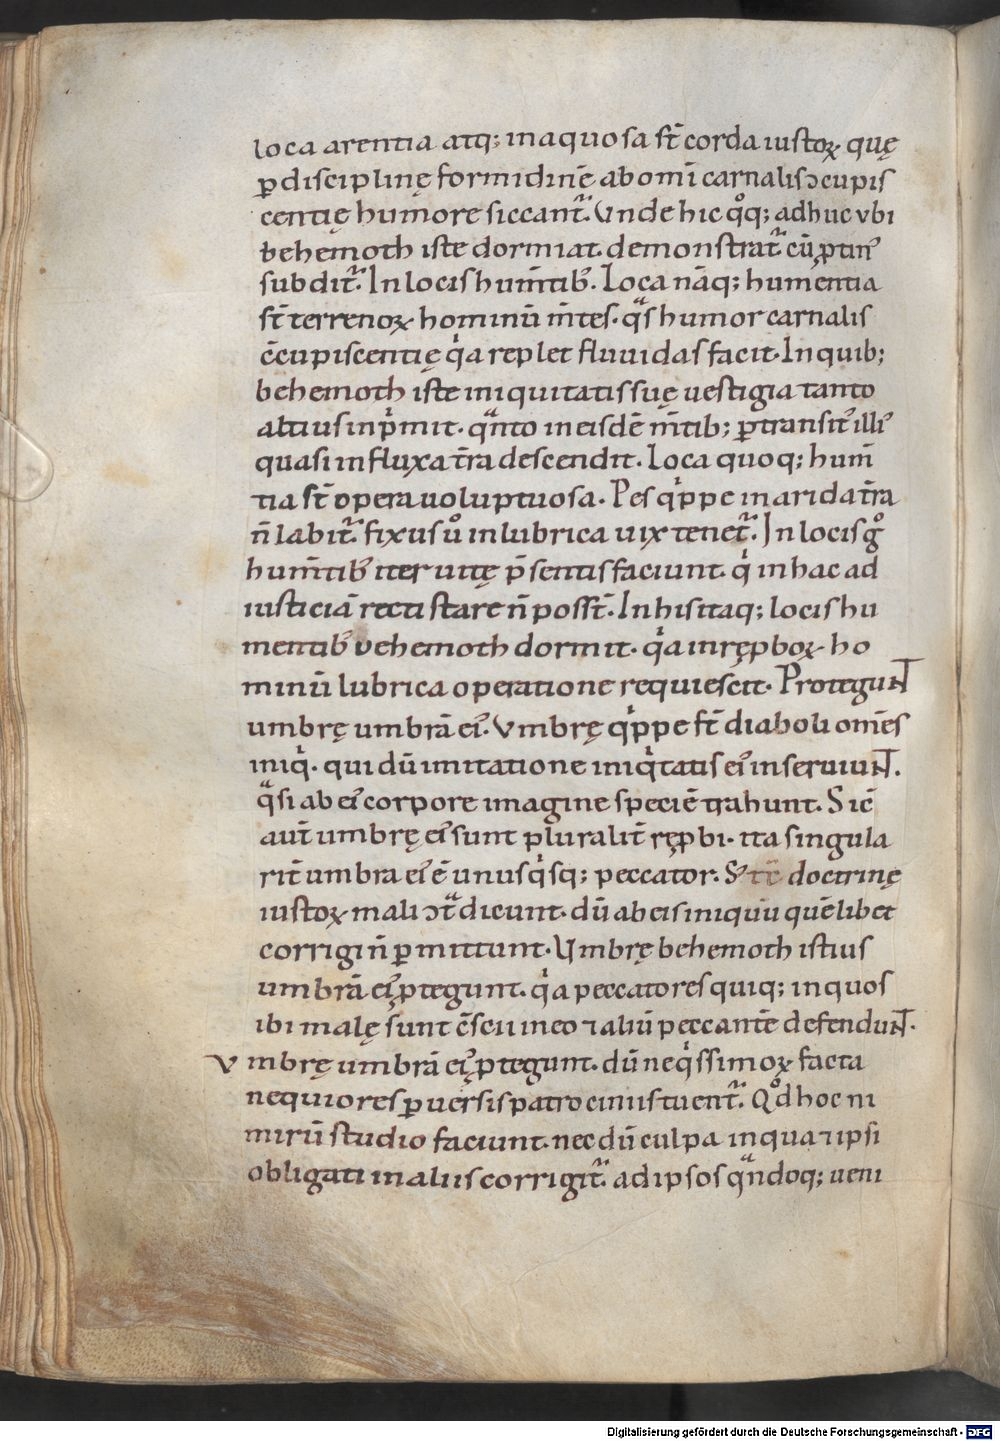 loca arentia atq; inaquosa st̄ corda iustoꝝ quę
ꝑ disciplinę formidinē ab om̄i carnalis ɔcupis
centię humore siccant᷑. Vnde hic qͦq; adhuc vbi
behemoth iste dormiat. demonstrat᷑ cū ꝓtin᾿
subdit᷑. In locis hum̄tib᾿. Loca nāq; humentia
st̄ terrenoꝝ hominū m̄tes. qᷓs humor carnalis
c̄cupiscentię qͥa replet fluuidas facit. In quib;
behemoth iste iniquitatis suę uestigia tanto
altius inpͥmit. qᷓnto in eisdē m̄tib; ꝑtransit᾿ illi᾿
quasi in fluxa t̄ra descendit. Loca quoq; hum̄
tia st̄ opera uoluptuosa. Pes qͥppe in arida t̄ra
n̄ labit᷑. fixus uͦ in lubrica uix tenet᷑. In locis gͦ
hum̄tib᾿ iter uitę p̄sentis faciunt. qͥ in hac ad
iusticiā recti stare n̄ poss̄t. In his itaq; locis hu
mentib᾿ vehemoth dormit. qͥa in ręꝓboꝝ ho
minū lubrica operatione requiescit. Protegunt
umbrę umbrā ei᾿. Vmbrę qͥppe st̄ diaboli om̄es
iniqͥ. qui dū imitatione iniqͥtatis ei᾿ inseruiunt.
qᷓsi ab ei᾿ corpore imagine speciē trahunt. Sic̄
aut̄ umbrę ei᾿ sunt pluralit̄ ręꝓbi. ita singula
rit̄ umbra ei᾿ ē unusqͥsq; peccator. S; doctrinę
iustoꝝ mali ɔtᷓdicunt. dū ab eis iniquū quēlibet
corrigi n̄ ꝑmittunt. Vmbrę behemoth istius
umbrā ei᾿ ꝓtegunt. qͥa peccatores quiq; in quos
ibi malę sunt c̄scii in eo ⁊ aliū peccantē defendunt.
Vmbrę umbrā ei᾿ ꝓtegunt. dū neqͥssimoꝝ facta
nequiores ꝑuersis patrociniis tuent᷑. Qͦd hoc ni
mirū studio faciunt. nec dū culpa in qua ⁊ ipsi
obligati in aliis corrigit᷑. ad ipsos qᷓndoq; ueni
Digitalisierung gefördert durch die Deutsche Forschungsgemeinschaft - DFG